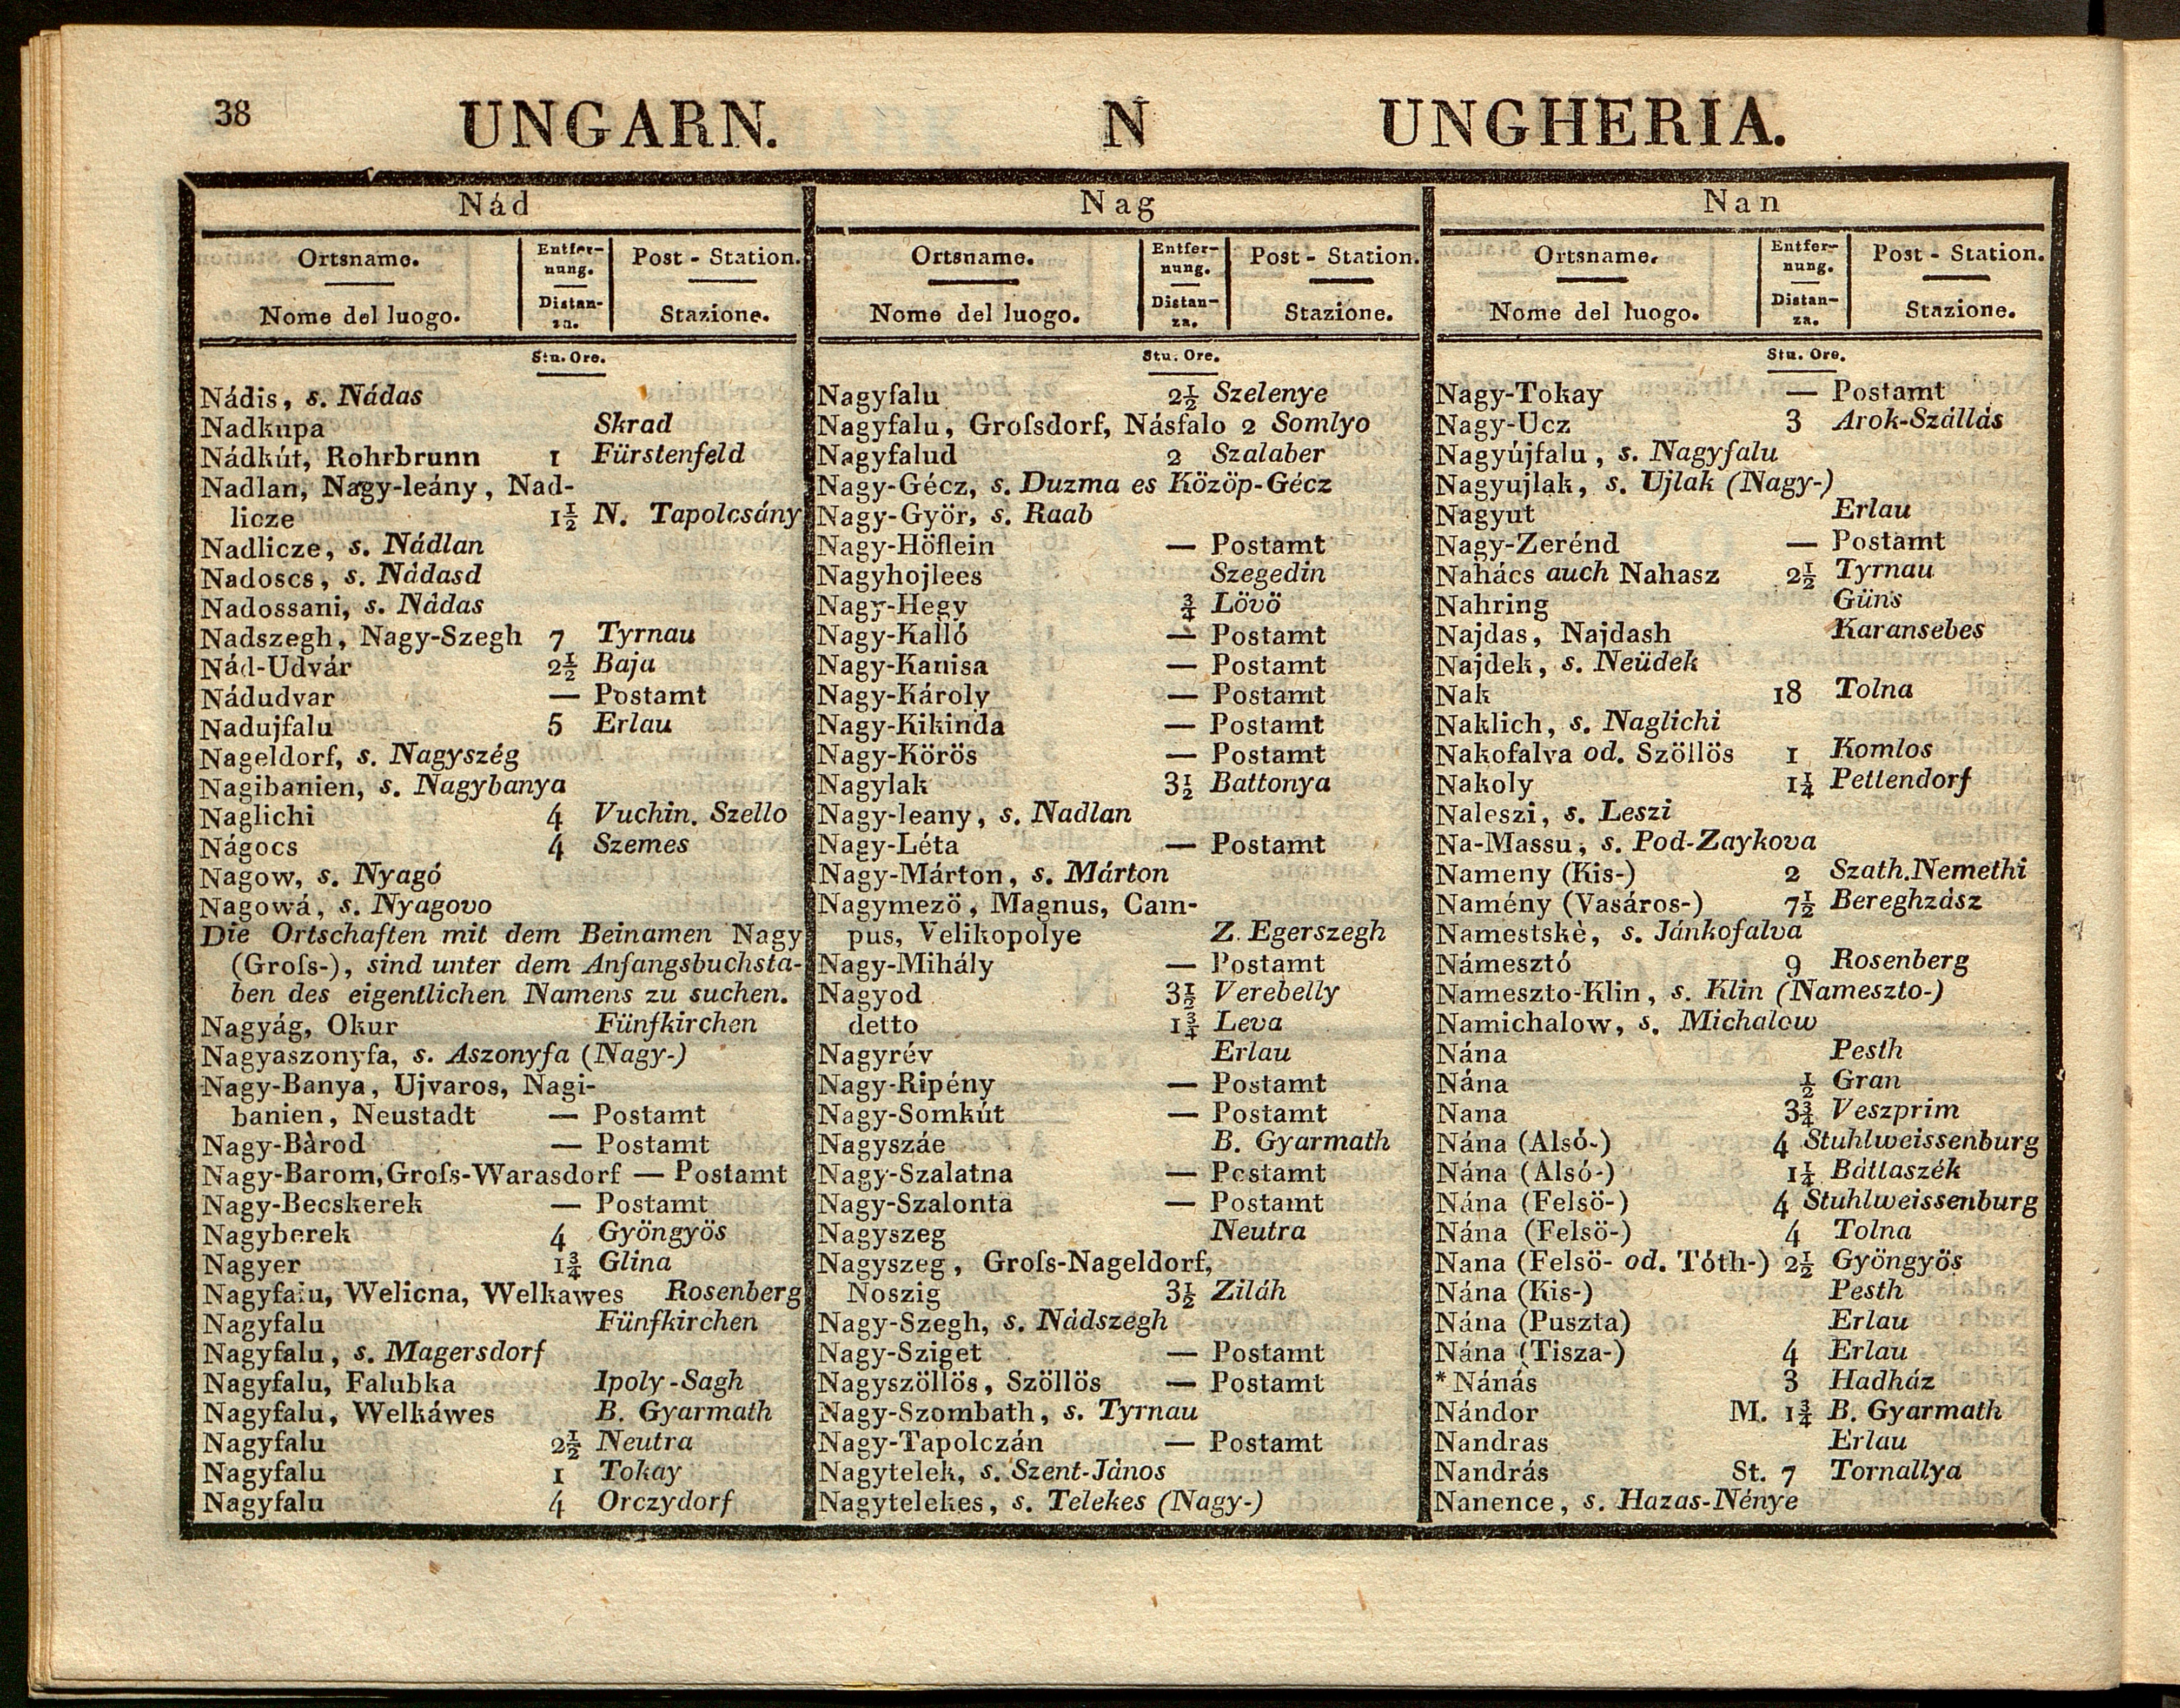 38
UNGARN. N UNGHERIA.
Nád
Ortsname. Entfer- Post - Station.
nung.
Nome del luogo. Distan- Stazione.
za.
Stu. Ore.
Nádis, s. Nádas
Nadkupa Skrad
Nádkút, Rohrbrunn 1 Fürstenfeld
Nadlan, Nagy-leány, Nad-
licze 1½ N. Tapolcsány
Nadlicze, s. Nádlan
Nadoscs, s. Nádasd
Nadossani, s. Nádas
Nadszegh, Nagy-Szegh 7 Tyrnau
Nád-Udvár 2½ Baja
Nádudvar — Postamt
Nadujfalu 5 Erlau
Nageldorf, s. Nagyszég
Nagibanien, s. Nagybanya
Naglichi 4 Vuchin. Szello
Nágocs 4 Szemes
Nagow, s. Nyagó
Nagowá, s. Nyagovo
Die Ortschaften mit dem Beinamen Nagy
(Groſs-), sind unter dem Anfangsbuchsta-
ben des eigentlichen Namens zu suchen.
Nagyág, Okur Fünfkirchen
Nagyaszonyfa, s. Aszonyfa (Nagy-)
Nagy-Banya, Ujvaros, Nagi-
banien, Neustadt — Postamt
Nagy-Bàrod — Postamt
Nagy-Barom, Groſs-Warasdorf — Postamt
Nagy-Becskerek — Postamt
Nagyberek 4 Gyöngyös
Nagyer 1¾ Glina
Nagyfalu, Welicna, Welkawes Rosenberg
Nagyfalu Fünfkirchen
Nagyfalu, s. Magersdorf
Nagyfalu, Falubka Ipoly-Sagh
Nagyfalu, Welkáwes B. Gyarmath
Nagyfalu 2½ Neutra
Nagyfalu 1 Tokay
Nagyfalu 4 Orczydorf
Nag
Ortsname. Entfer- Post - Station.
nung.
Nome del luogo. Distan- Stazione.
za.
Stu. Ore.
Nagyfalu 2½ Szelenye
Nagyfalu, Groſsdorf, Násfalo 2 Somlyo
Nagyfalud 2 Szalaber
Nagy-Gécz, s. Duzma es Közöp-Gécz
Nagy-Györ, s. Raab
Nagy-Höflein — Postamt
Nagyhojlees Szegedin
Nagy-Hegy ¾ Lövö
Nagy-Kalló — Postamt
Nagy-Kanisa — Postamt
Nagy-Károly — Postamt
Nagy-Kikinda — Postamt
Nagy-Körös — Postamt
Nagylak 3½ Battonya
Nagy-leany, s. Nadlan
Nagy-Léta — Postamt
Nagy-Márton, s. Márton
Nagymezö, Magnus, Cam-
pus, Velikopolye Z. Egerszegh
Nagy-Mihály — Postamt
Nagyod 3½ Verebelly
detto 1¾ Leva
Nagyrév Erlau
Nagy-Ripény — Postamt
Nagy-Somkút — Postamt
Nagyszáe B. Gyarmath
Nagy-Szalatna — Postamt
Nagy-Szalonta — Postamt
Nagyszeg Neutra
Nagyszeg, Groſs-Nageldorf,
Noszig 3½ Ziláh
Nagy-Szegh, s. Nádszegh
Nagy-Sziget — Postamt
Nagyszöllös, Szöllös — Postamt
Nagy-Szombath, s. Tyrnau
Nagy-Tapolczán — Postamt
Nagytelek, s. Szent-János
Nagytelekes, s. Telekes (Nagy-)
Nan
Ortsname. Entfer- Post - Station.
nung.
Nome del luogo. Distan- Stazione.
za.
Stu. Ore.
Nagy-Tokay — Postamt
Nagy-Ucz 3 Arok-Szállás
Nagyújfalu, s. Nagyfalu
Nagyujlak, s. Ujlak (Nagy-)
Nagyut Erlau
Nagy-Zerénd — Postamt
Nahács auch Nahasz 2½ Tyrnau
Nahring Güns
Najdas, Najdash Karansebes
Najdek, s. Neüdek
Nak 18 Tolna
Naklich, s. Naglichi
Nakofalva od. Szöllös 1 Komlos
Nakoly 1¼ Pettendorf
Naleszi, s. Leszi
Na-Massu, s. Pod-Zaykova
Nameny (Kis-) 2 Szath. Nemethi
Namény (Vasáros-) 7½ Bereghzász
Namestskè, s. Jánkofalva
Námesztó 9 Rosenberg
Nameszto-Klin, s. Klin (Nameszto-)
Namichalow, s. Michalow
Nána Pesth
Nána ½ Gran
Nana 3¾ Veszprim
Nána (Alsó-) 4 Stuhlweissenburg
Nána (Alsó-) 1¼ Báttaszék
Nána (Felsö-) 4 Stuhlweissenburg
Nána (Felsö-) 4 Tolna
Nana (Felsö- od. Tóth-) 2½ Gyöngyös
Nána (Kis-) Pesth
Nána (Puszta) Erlau
Nána (Tisza-) 4 Erlau
*Nánás 3 Hadház
Nándor M. 1¾ B. Gyarmath
Nandras Erlau
Nandrás St. 7 Tornallya
Nanence, s. Hazas-Nénye